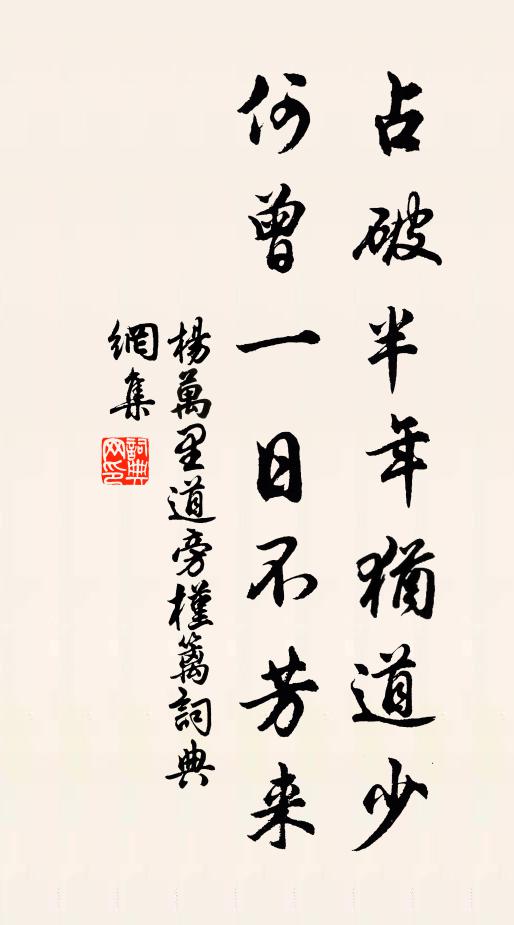 占破半年猶道少
何曾一日不芳来
楊萬里道旁槿籬詞典
網集
詞典网印